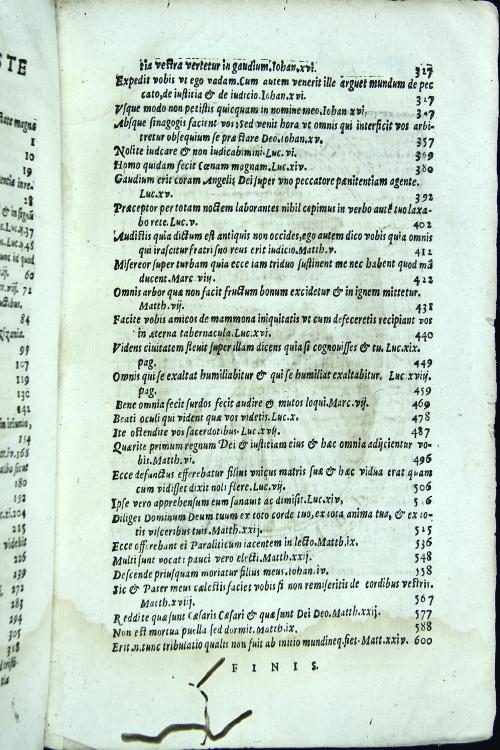 STE
tia vestra vertetur in gaudium. Iohan. xvi. 327
Expedit vobis vt ego vadam. Cum autem venerit ille arguet mundum de pec
cato, de iustitia & de iudicio. Iohan. xvi.
Vsque modo non petistis quicquam in nomine meo. Iohan xvi. 347
Absque sinagogis facient vos: sed venit hora vt omnis qui interficit vos arbi-
tretur obsequium se præstare Deo. Iohan. xv. 357
Nolite iudcare & non iudicabimini. Luc. vi. 369
Homo quidam fecit Cœnam magnam. Luc. xiv. 380
Gaudium erit coram Angelis Dei super vno peccatore pœnitentiam agente.
Luc. xv. 392
Præceptor per totam noctem laborantes nihil cepimus in verbo autē tuo laxa-
bo rete. Luc. v. 402
Audistis quia dictum est antiquis non occides, ego autem dico vobis quia omnis
qui irascitur fratri sno reus erit iudicio. Matth. v. 412
Misereor super turbam quia ecce iam triduo sustinent me nec habent quod mā
ducent. Marc viij. 422
Omnis arbor qua non facit fructum bonum excidetur & in ignem mittetur.
Matth. vij. 431
Facite vobis amicos de mammona iniquitatis vt cum defeceretis recipiant vos
in æterna tabernacula. Luc. xvi. 440
Videns ciuitatem fleuit super illam dicens quia si cognouisses & tu. Luc. xix.
pag. 449
Omnis qui se exaltat humiliabitur & qui se humiliat exaltabitur. Luc xviij.
pag. 459
Bene omnia fecit surdos fecit audire & mutos loqui. Marc. vij. 469
Beati oculi qui vident quæ vos videtis. Luc. x. 478
Ite ostendite vos sacerdotibus. Luc. xvij. 487
Quærite primum regnum Dei & iustitiam eius & hæc omnia adijcientur vo-
bis. Matth. vi. 496
Ecce defunctus efferebatur filius vnicus matris suæ & hæc vidua erat quam
cum vidisset dixit noli flere. Luc. vij. 506
Ipse vero apprehensum eum sanauit ac dimisit. Luc. xiv,
Diliges Dominum Deum tuum ex toto corde tuo, ex tota anima tua, & ex to-
tis visceribus tuis. Matth. xxij. 525
Ecce offerebant ei Paraliticum iacentem in lecto. Matth. ix. 536
Multi sunt vocati pauci vero electi. Matth. xxij. 548
Descende priusquam moriatur filius meus. Iohan. iv. 558
Sic & Pater meus cælestis faciet vobis si non remiseritis de cordibus vestris.
Matth. xviij. 567
Reddite quæ sunt Cæsaris Cæsari & quæ sunt Dei Deo. Matth. xxij. 577
Non est mortua puella sed dormit. Matth. ix. 588
Erit .n. tunc tribulatio qualis non fuit ab initio mundi neq. fiet. Matt. xxiv. 600
FINIS.